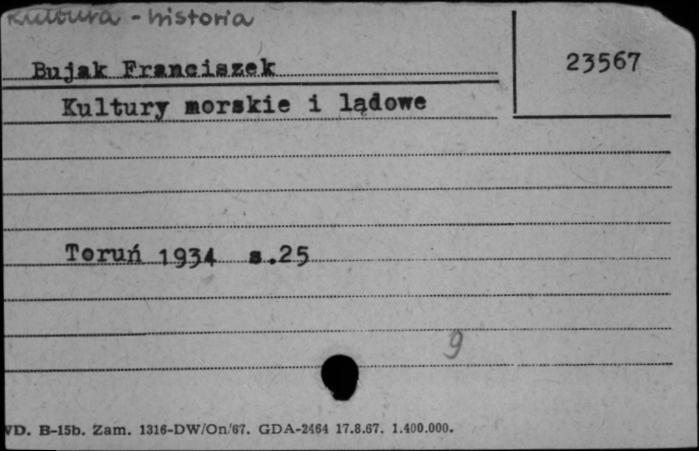 Kultura - historia
Bujak Franciszek
23567
Kultury morskie i lądowe
Toruń 1934 s.25
9
WD. B-15b. Zam. 1316-DW/On/67. GDA-2464 17.8.67. 1.400.000.